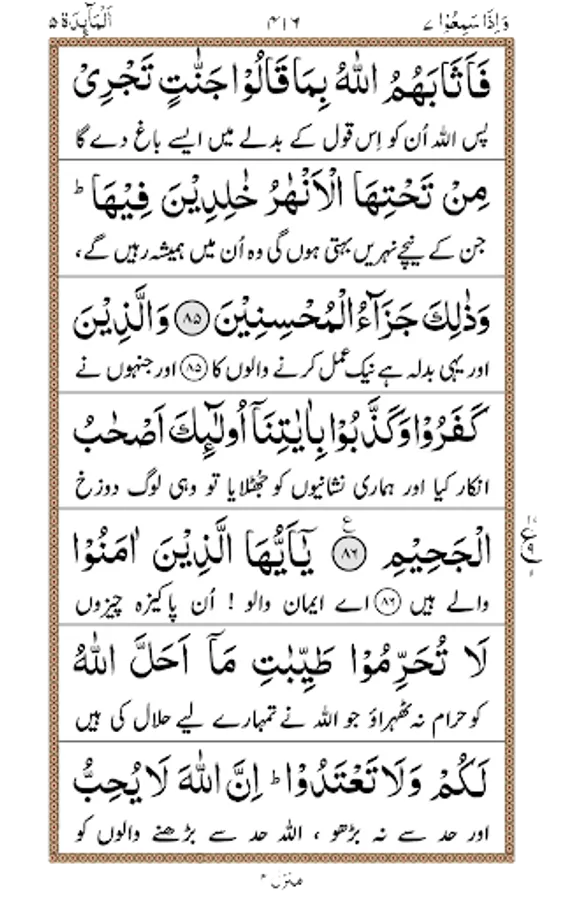 وَاِذَا سَمِعُوْا ٧ ۴۱۶ اَلْمَآىِٕدَة ۵
فَاَثَابَهُمُ اللّٰهُ بِمَا قَالُوْا جَنّٰتٍ تَجْرِیْ
پس اللہ اُن کو اِس قول کے بدلے میں ایسے باغ دے گا
مِنْ تَحْتِهَا الْاَنْهٰرُ خٰلِدِیْنَ فِیْهَا ؕ
جن کے نیچے نہریں بہتی ہوں گی وہ اُن میں ہمیشہ رہیں گے،
وَذٰلِكَ جَزَآءُ الْمُحْسِنِیْنَ ﴿۸۵﴾ وَالَّذِیْنَ
اور یہی بدلہ ہے نیک عمل کرنے والوں کا ﴿۸۵﴾ اور جنہوں نے
كَفَرُوْا وَكَذَّبُوْا بِاٰیٰتِنَاۤ اُولٰٓىِٕكَ اَصْحٰبُ
انکار کیا اور ہماری نشانیوں کو جُھٹلایا تو وہی لوگ دوزخ
الْجَحِیْمِ ﴿۸۶﴾ ع یٰۤاَیُّهَا الَّذِیْنَ اٰمَنُوْا
والے ہیں ﴿۸۶﴾ اے ایمان والو ! اُن پاکیزہ چیزوں
لَا تُحَرِّمُوْا طَیِّبٰتِ مَاۤ اَحَلَّ اللّٰهُ
کو حرام نہ ٹھہراؤ جو اللہ نے تمہارے لیے حلال کی ہیں
لَكُمْ وَلَا تَعْتَدُوْا ؕ اِنَّ اللّٰهَ لَا یُحِبُّ
اور حد سے نہ بڑھو ، اللہ حد سے بڑھنے والوں کو
منزل ۲